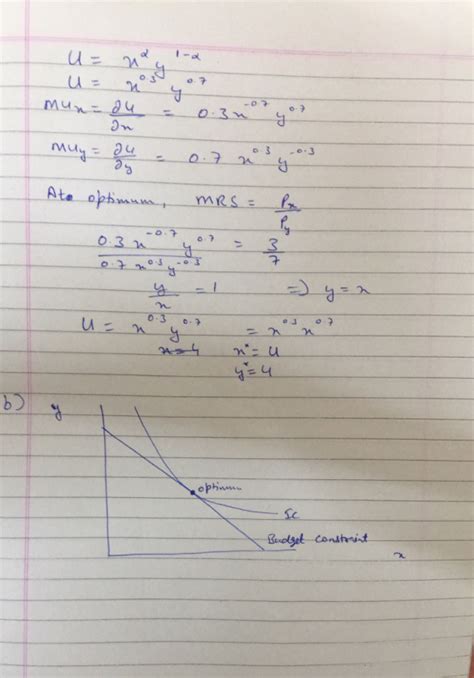 U = x^α y^(1-α)
U = x^0.3 y^0.7
MUx = ∂U/∂x = 0.3 x^-0.7 y^0.7
MUy = ∂U/∂y = 0.7 x^0.3 y^-0.3
At optimum, MRS = Px/Py
0.3 x^-0.7 y^0.7 / 0.7 x^0.3 y^-0.3 = 3/7
y/x = 1 => y = x
U = x^0.3 y^0.7 = x^0.3 x^0.7
x=4 x* = U
y* = U
b) y
optimum
IC
Budget constraint
x